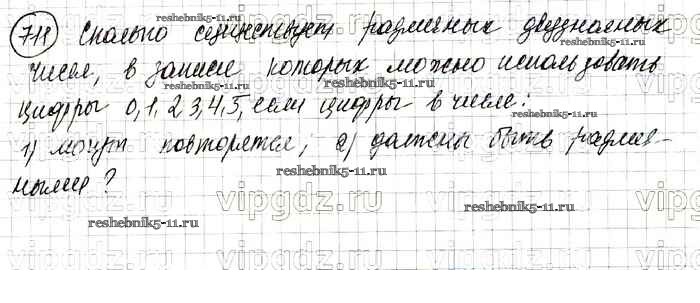 711 Сколько существует различных двузначных
чисел, в записи которых можно использовать
цифры 0,1,2,3,4,5, если цифры в числе:
1) могут повторятся; 2) должны быть различ-
ными?
reshebnik5-11.ru
reshebnik5-11.ru
reshebnik5-11.ru
reshebnik5-11.ru
reshebnik5-11.ru
reshebnik5-11.ru
vipgdz.ru
vipgdz.ru
vipgdz.ru
vipgdz.ru
vipgdz.ru
vipgdz.ru
vipgdz.ru
vipgdz.ru
vipgdz.ru